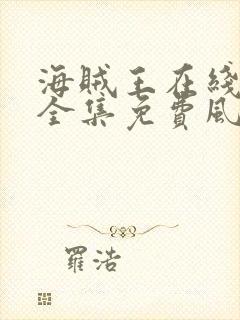 海贼王在綫
全集免費風
羅浩